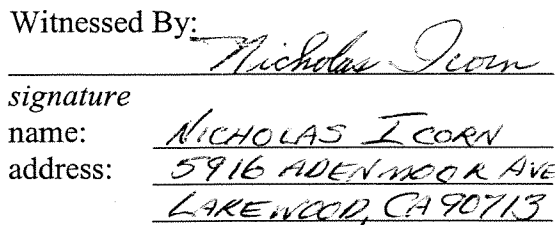 Witnessed By:
Nicholas Icorn
signature
name: NICHOLAS ICORN
address: 5916 ADENMOOR AVE
LAKEWOOD, CA 90713